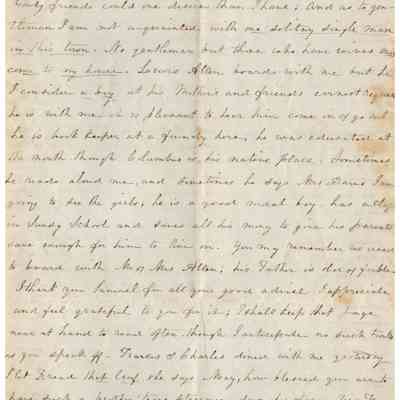 friends could one desire than I have; And as to gen-
tleman I am not acquainted with one solitary single man
in this town. No gentleman but those who have wives
come to my house. Allen boards with me but he
I consider a boy at his Mothers and friends earnest request
he is with me. it is pleasant to hear him come in & go out
he is book keeper at a foundry here, he was educated at
the north though Columbus is his native place. Sometimes
he reads aloud me, and sometimes he says Mrs I am
going to see the girls, he is a good moral boy. has a class
in Sunday School and saves all his money to give his parents
save enough for him to live on. You may remember we used
to board with Mr & Mrs Allen; his Father is
I thank you for all your good advice I appreciate
and feel grateful to you for it; I shall keep that page
near at hand to read often though I anticipate no such
as you speak off. & Charles dined with me yesterday
I let read that leaf she says Mary, how blessed you are to
have such a brother